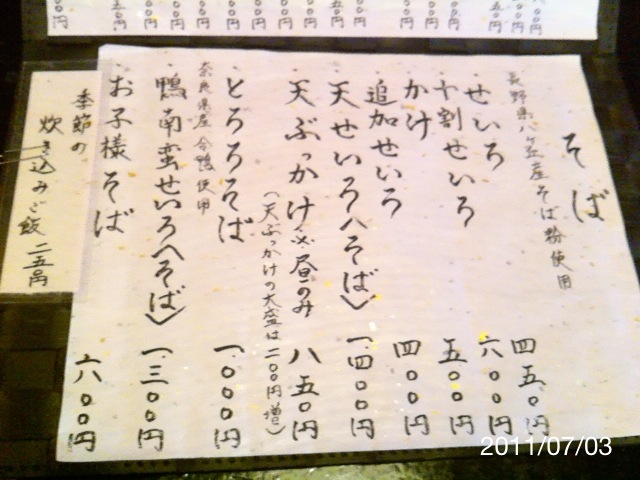 そば
長野県八ヶ岳産そば粉使用
せいろ 四五〇円
十割せいろ 六〇〇円
かけ 五〇〇円
追加せいろ 四〇〇円
天せいろ(そば) 一、四〇〇円
天ぶっかけ ※昼のみ 八五〇円
(天ぶっかけの大盛は二〇〇円増)
とろろそば 一、〇〇〇円
奈良県産合鴨使用
鴨南蛮せいろ(そば) 一、三〇〇円
お子様そば 六〇〇円
季節の
炊き込みご飯 二五〇円
2011/07/03